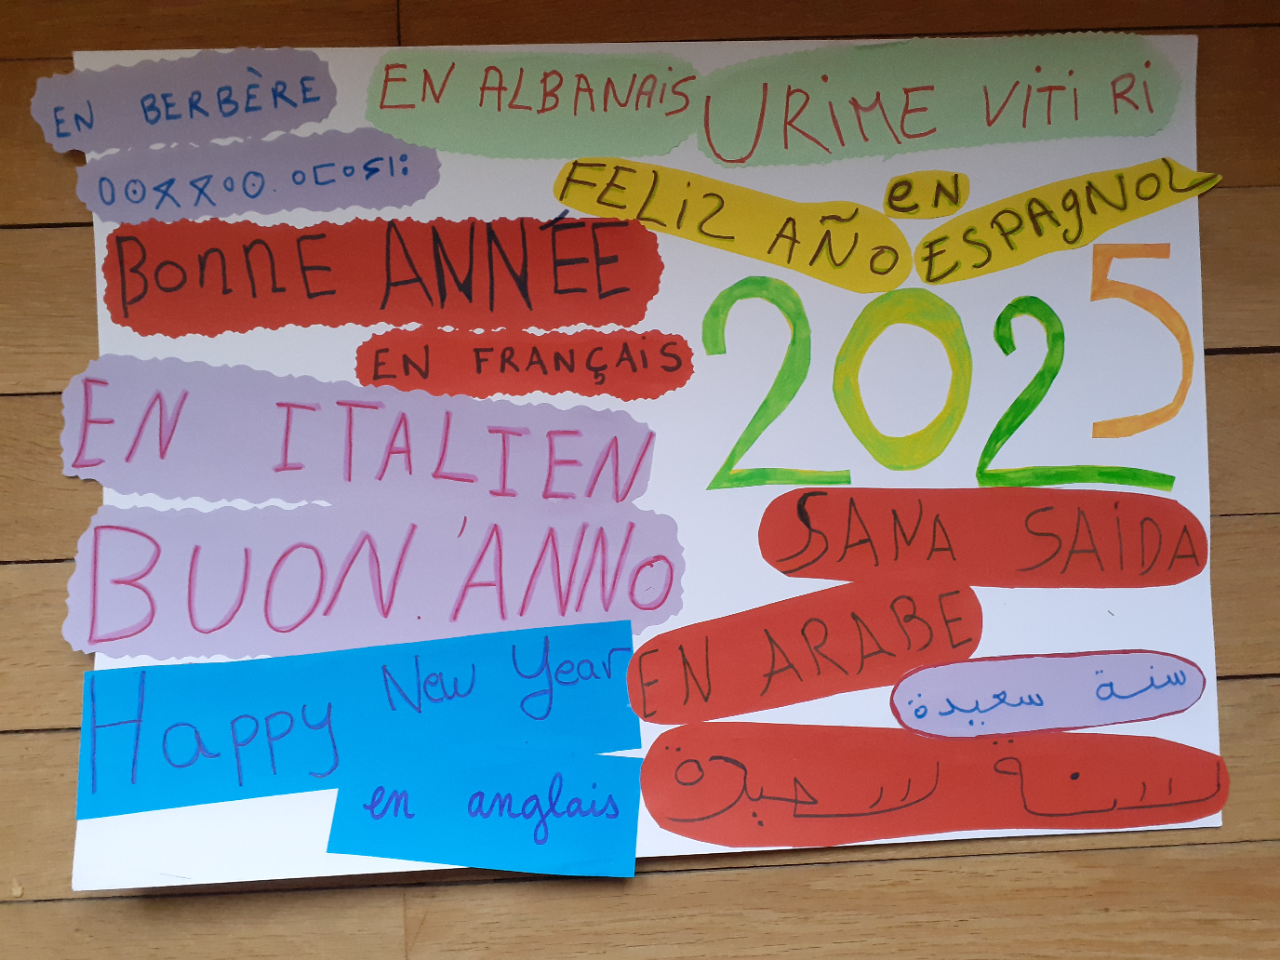 EN BERBÈRE
ⴰⵙⴳⴳⴰⵙ. ⴰⵎⴰⵢⵏⵓ
EN ALBANAIS
URIME VITI RI
FELIZ AÑO
EN ESPAGNOL
BONNE ANNÉE
EN FRANÇAIS
2025
EN ITALIEN
BUON.'ANNO
SANA SAÏDA
EN ARABE
سنة سعيدة
Happy New Year
en anglais